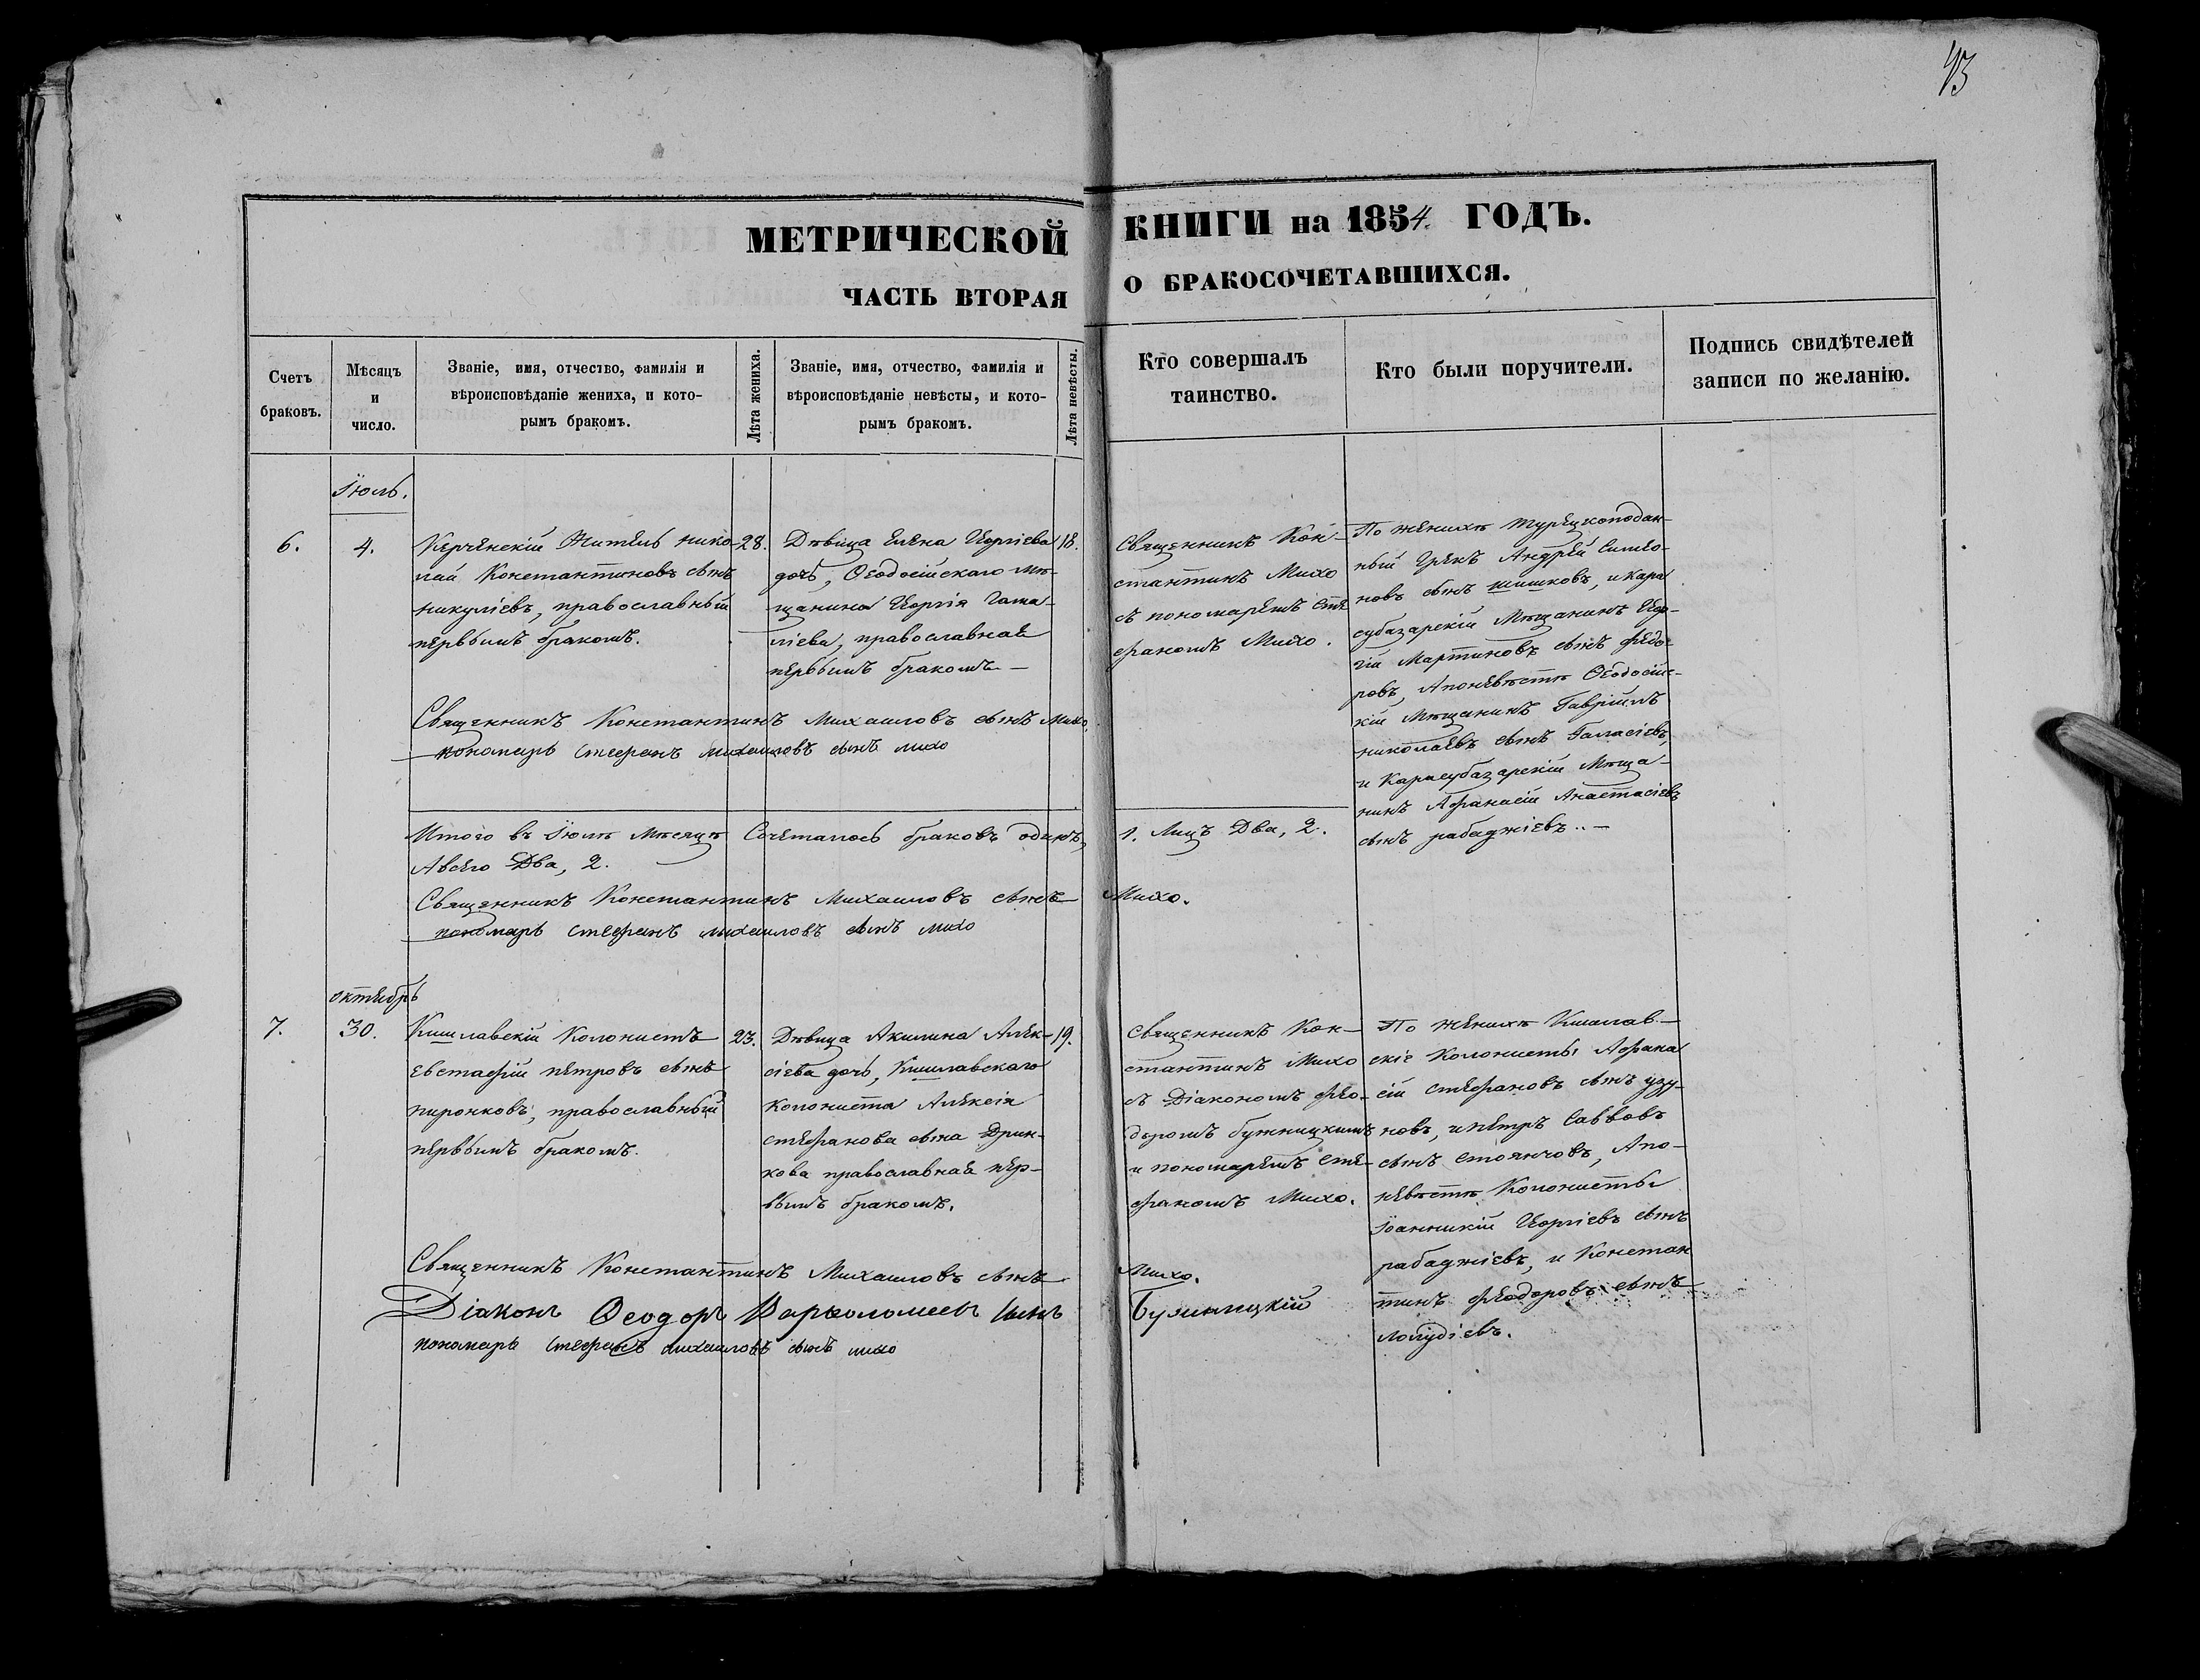 43
МЕТРИЧЕСКОЙ КНИГИ на 1854. ГОДЪ.
ЧАСТЬ ВТОРАЯ О БРАКОСОЧЕТАВШИХСЯ.
Счетъ
браковъ.
Мѣсяцъ
и
число.
Званіе, имя, отчество, фамилія и
вѣроисповѣданіе жениха, и кото-
рымъ бракомъ.
Лѣта жениха.
Званіе, имя, отчество, фамилія и
вѣроисповѣданіе невѣсты, и кото-
рымъ бракомъ.
Лѣта невѣсты.
Кто совершалъ
таинство.
Кто были поручители.
Подпись свидѣтелей
записи по желанію.
Іюль.
6.
4.
Керченскій Житель Нико-
лай Константиновъ сынъ
Никуліевъ, православный
первымъ бракомъ.
28.
Дѣвица Елена Георгіева
дочь, Ѳеодосійскаго мѣ-
щанина Георгія
православная
первымъ бракомъ —
18.
Священникъ Кон-
стантинъ Михо
съ пономаремъ Сте
фаномъ Михо.
По женихѣ турецкоподан-
ный Грекъ Андрей Симео-
новъ сынъ Шишковъ, и Кара
субазарскій Мѣщанинъ Геор-
гій Мартиновъ сынъ Федо-
ровъ, А по невѣстѣ Ѳеодосійс-
кій Мѣщанинъ Гавріилъ
Николаевъ сынъ Галасіевъ,
и Карасубазарскій Мѣща-
нинъ Афанасій Анастасіевъ
сынъ рабаджіевъ. —
Священникъ Константинъ Михаиловъ сынъ Михо.
пономарь Стефанъ михаиловъ сынъ михо
Итого въ Іюлѣ Мѣсяцѣ Сочеталось браковъ одинъ, 1. Лицъ Два, 2.
А всего Два, 2.
Священникъ Константинъ Михаиловъ сынъ Михо.
пономарь Стефанъ михаиловъ сынъ михо
октябрь
7.
30.
Кишлавскій Колонистъ
Евстафій Петровъ сынъ
Пиронковъ, православный
первымъ бракомъ.
23.
Дѣвица Акилина Алек-
сіева дочь, Кишлавскаго
Колониста Алексія
Стефанова сына Дрин-
кова православная пер-
вымъ бракомъ.
19.
Священникъ Кон-
стантинъ Михо
съ Діакономъ Фео-
доромъ Бужницкимъ
и пономаремъ Сте-
фаномъ Михо.
По женихѣ Кишлав-
скіе Колонисты Афана
сій Стефановъ сынъ узу-
новъ, и Петръ Саввовъ
сынъ Стоянчовъ, А по-
невѣстѣ Колонисты
Іоанникій Георгіевъ сынъ
рабаджіевъ, и Констан
тинъ Феодоровъ сынъ
Священникъ Константинъ Михаиловъ сынъ Михо.
Діаконъ Ѳеодоръ Варѳоломеевъ сынъ Бужницкій
пономарь Стефанъ михаиловъ сынъ михо